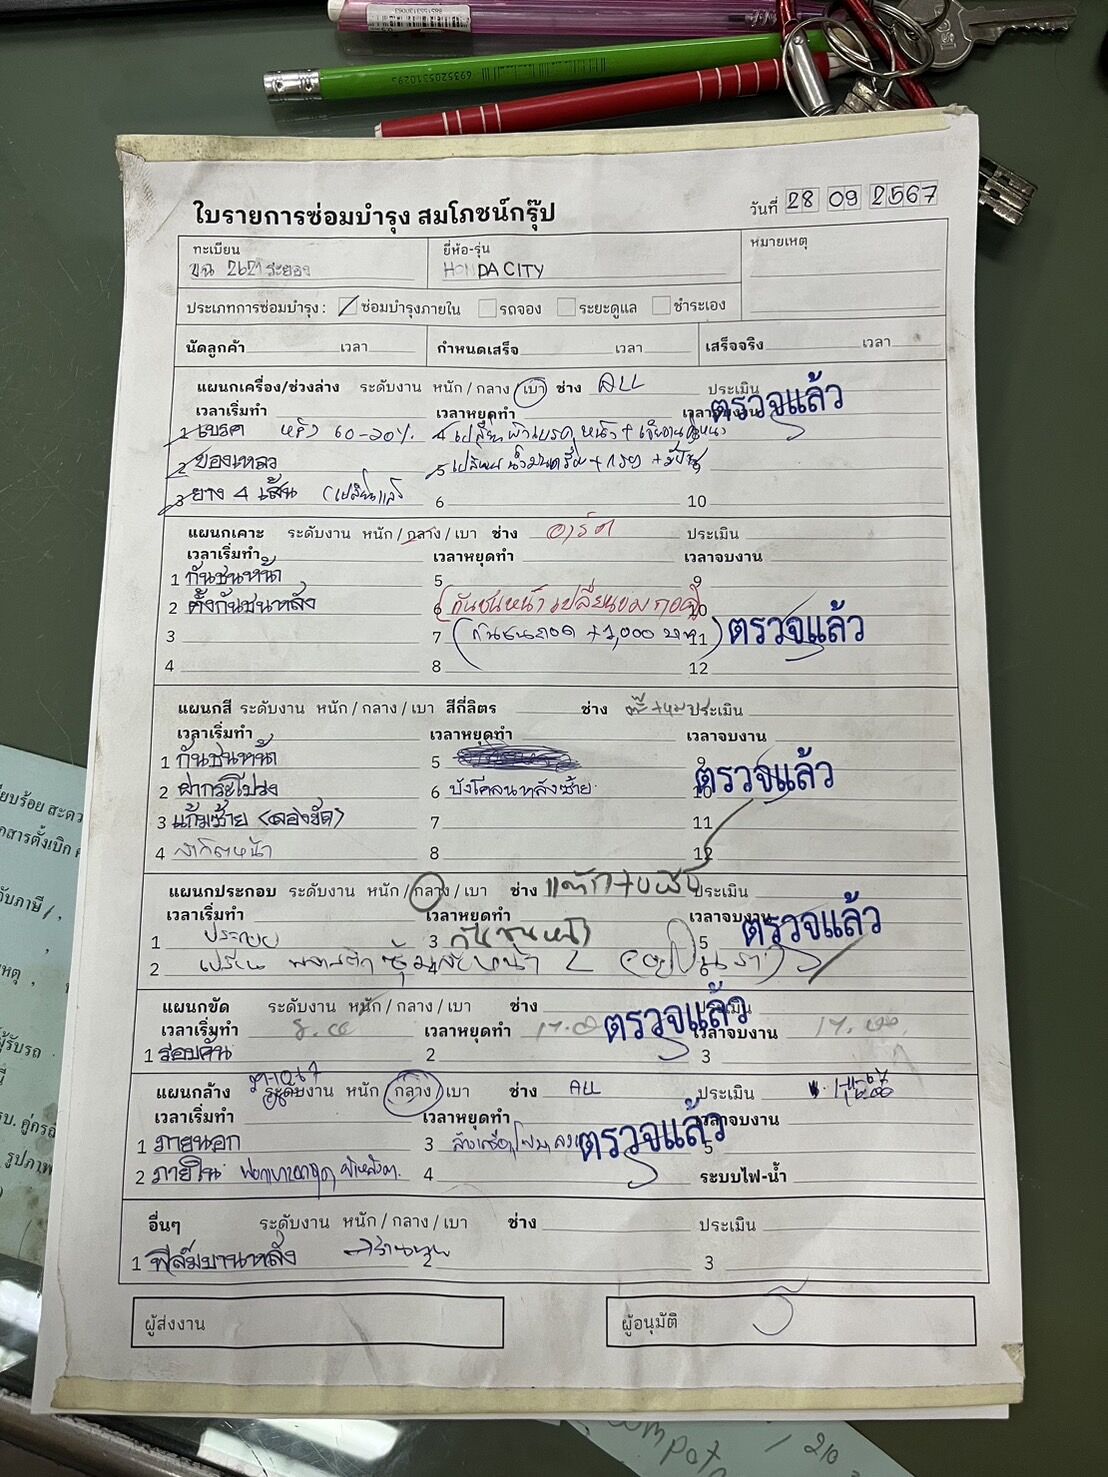 ใบรายการซ่อมบำรุง สมโภชน์กรุ๊ป
วันที่ 28 09 2567
ทะเบียน
2621 ระยอง
ยี่ห้อ-รุ่น
HONDA CITY
หมายเหตุ
ประเภทการซ่อมบำรุง : ซ่อมบำรุงภายใน รถจอง ระยะดูแล ชำระเอง
นัดลูกค้า เวลา กำหนดเสร็จ เวลา เสร็จจริง เวลา
แผนกเครื่อง/ช่วงล่าง ระดับงาน หนัก / กลาง / เบา ช่าง ALL ประเมิน
เวลาเริ่มทำ เวลาหยุดทำ เวลาจบงาน
ตรวจแล้ว
1 เบรค หลัง 60-20% 4 เปลี่ยนผ้าเบรค หน้า +
2 ของเหลว 5 เปลี่ยนน้ำมันเครื่อง + กรอง +
3 ยาง 4 เส้น (เปลี่ยนแล้ว 6 10
แผนกเคาะ ระดับงาน หนัก / กลาง / เบา ช่าง อาร์ต ประเมิน
เวลาเริ่มทำ เวลาหยุดทำ เวลาจบงาน
1 กันชนหน้า 5 9
2 ตั้งกันชนหลัง 6 (กันชนหน้าเปลี่ยนของ 10
3 7 (กันชนถอด +1,000 บาท) 11 ตรวจแล้ว
4 8 12
แผนกสี ระดับงาน หนัก / กลาง / เบา สีกี่ลิตร ช่าง ประเมิน
เวลาเริ่มทำ เวลาหยุดทำ เวลาจบงาน
1 กันชนหน้า 5 9
2 ฝากระโปรง 6 บังโคลนหลังซ้าย 10 ตรวจแล้ว
3 แก้มซ้าย (ลองขัด) 7 11
4 8 12
แผนกประกอบ ระดับงาน หนัก / กลาง / เบา ช่าง ประเมิน
เวลาเริ่มทำ เวลาหยุดทำ เวลาจบงาน
1 ประกอบ 3 กันชนหน้า 5 ตรวจแล้ว
2 เปลี่ยน พลาสติกซุ้มล้อหน้า L
แผนกขัด ระดับงาน หนัก / กลาง / เบา ช่าง ประเมิน
เวลาเริ่มทำ เวลาหยุดทำ เวลาจบงาน
ตรวจแล้ว
1 รอบคัน 2 3
แผนกล้าง ระดับงาน หนัก / กลาง / เบา ช่าง ALL ประเมิน
เวลาเริ่มทำ เวลาหยุดทำ เวลาจบงาน
1 ภายนอก 3 5 ตรวจแล้ว
2 ภายใน 4 ระบบไฟ-น้ำ
อื่นๆ ระดับงาน หนัก / กลาง / เบา ช่าง ประเมิน
1 ฟิล์มบานหลัง 2 3
ผู้ส่งงาน ผู้อนุมัติ